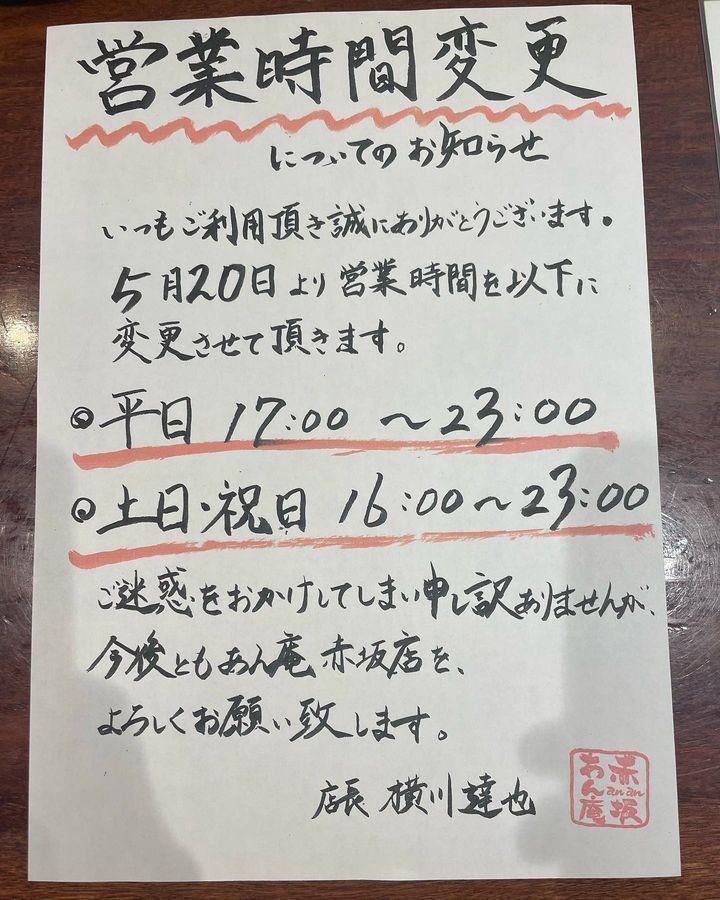 営業時間変更
についてのお知らせ
いつもご利用頂き誠にありがとうございます。
5月20日より営業時間を以下に
変更させて頂きます。
◎平日 17:00 〜23:00
◎土日・祝日 16:00〜23:00
ご迷惑をおかけしてしまい申し訳ありませんが、
今後ともあん庵 赤坂店を、
よろしくお願い致します。
店長 横川達也
赤坂
an an
あん庵